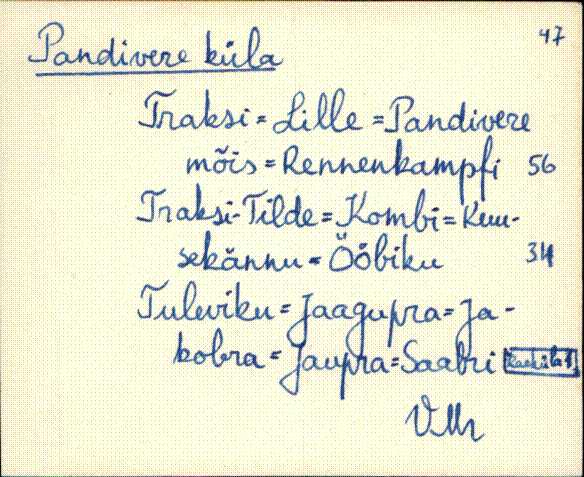 47
Pandivere küla
Traksi = Lille = Pandivere
mõis = Rennenkampfi 56
Traksi-Tilde = Kombi = Kuu-
sekännu = Ööbiku 34
Tuleviku = Jaagupra = Ja-
kobra = Jaupra = Saabri
VMr